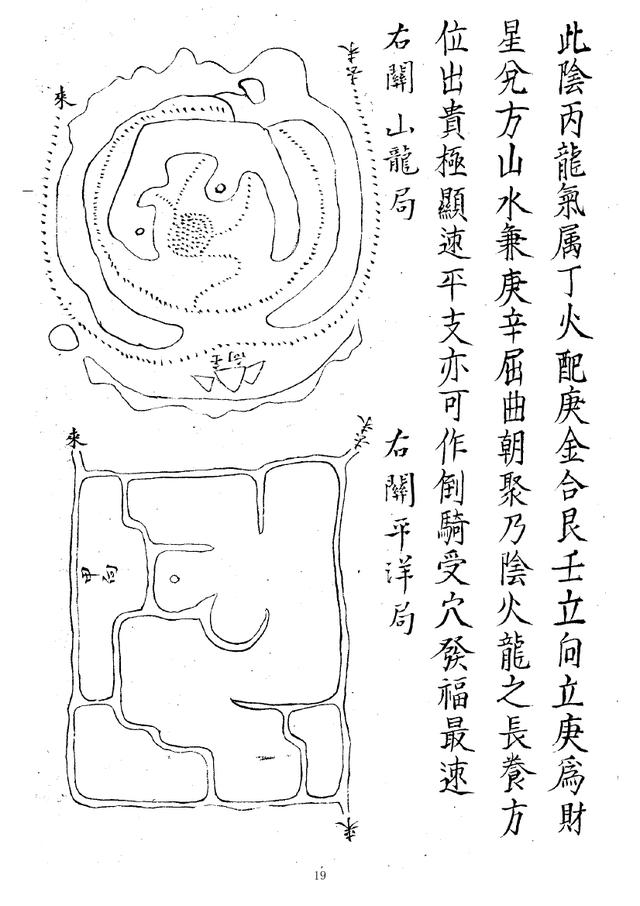 此陰丙龍氣属丁火配庚金合艮壬立向立庚爲財
星兌方山水兼庚辛屈曲朝聚乃陰火龍之長養方
位出貴極顯速平支亦可作倒騎受穴發福最速
右關山龍局
來
右關平洋局
來
来
19